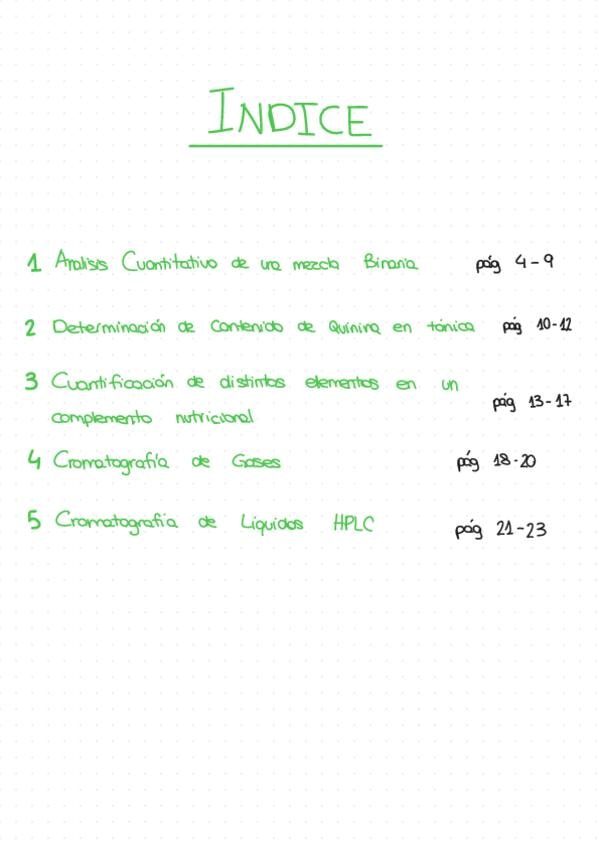 INDICE
1 Analisis Cuantitativo de una mezcla Binaria pág 4-9
2 Determinación de Contenido de Quinina en tónica pág 10-12
3 Cuantificación de distintos elementos en un
complemento nutricional pág 13-17
4 Cromatografía de Gases pág 18-20
5 Cromatografia de Líquidos HPLC pág 21-23